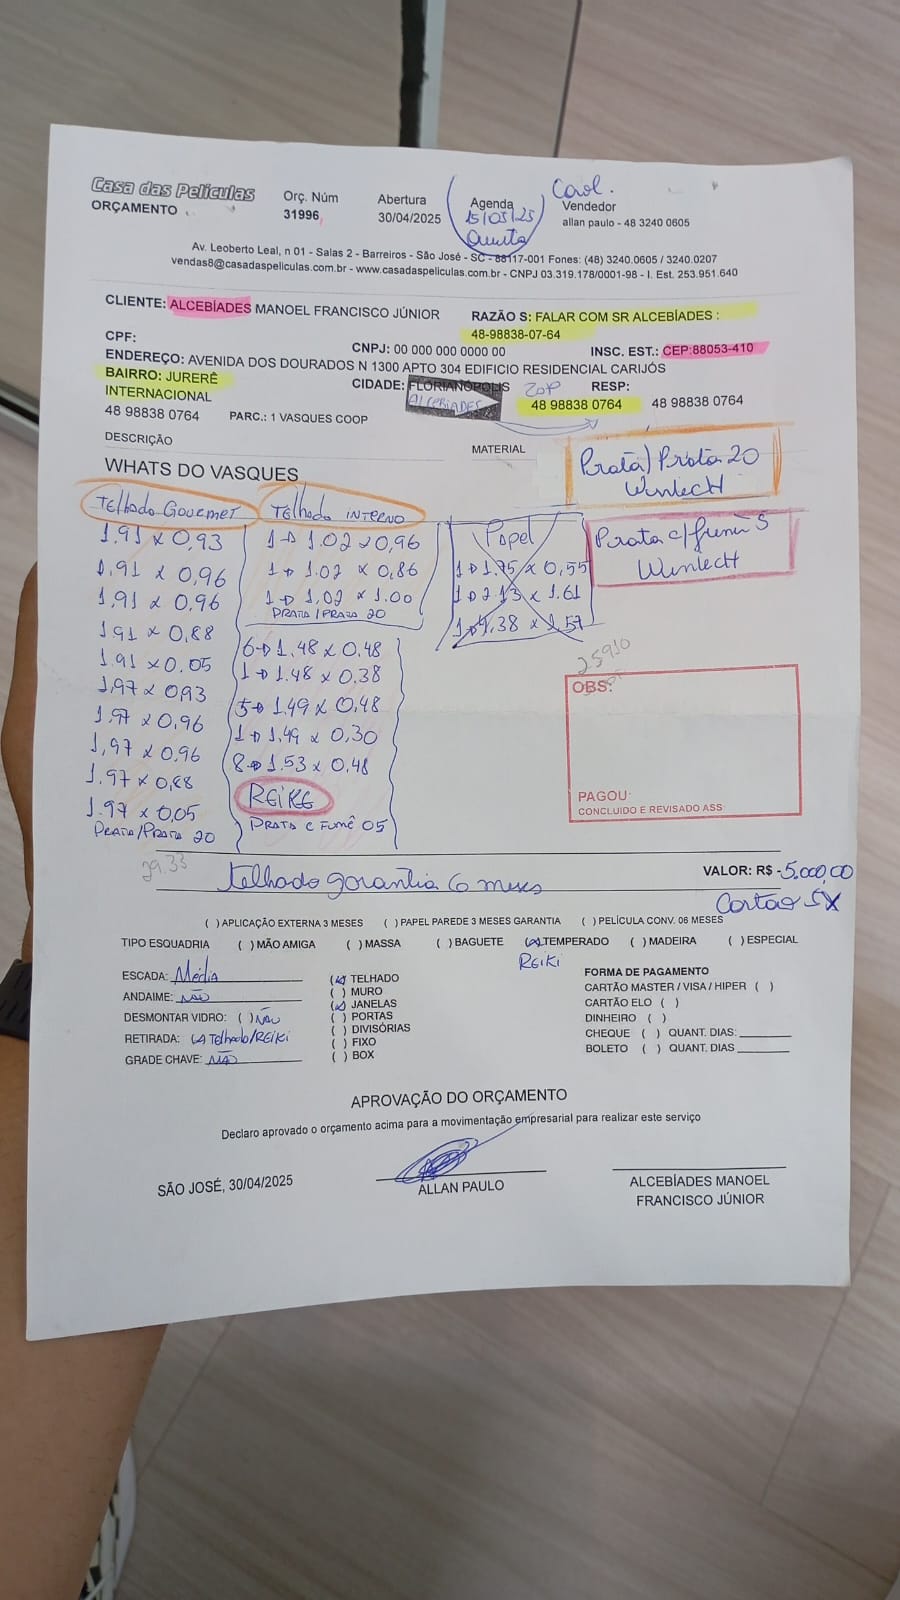 Casa das Películas
ORÇAMENTO
Orç. Núm
31996
Abertura
30/04/2025
Agenda
15/05/25
Quinta
Carol.
Vendedor
allan paulo - 48 3240 0605
Av. Leoberto Leal, n 01 - Salas 2 - Barreiros - São José - SC - 88117-001 Fones: (48) 3240.0605 / 3240.0207
vendas8@casadaspeliculas.com.br - www.casadaspeliculas.com.br - CNPJ 03.319.178/0001-98 - I. Est. 253.951.640
CLIENTE: ALCEBÍADES MANOEL FRANCISCO JÚNIOR
RAZÃO S: FALAR COM SR ALCEBÍADES :
48-98838-07-64
CPF:
CNPJ: 00 000 000 0000 00
INSC. EST.: CEP:88053-410
ENDEREÇO: AVENIDA DOS DOURADOS N 1300 APTO 304 EDIFICIO RESIDENCIAL CARIJÓS
BAIRRO: JURERÊ
INTERNACIONAL
CIDADE: FLORIANÓPOLIS
RESP:
ALCEBIADES
48 98838 0764
48 98838 0764
48 98838 0764
PARC.: 1 VASQUES COOP
DESCRIÇÃO
MATERIAL
WHATS DO VASQUES
Prata/Prata 20
WintecH
Prata c/fumê 5
WintecH
Telhado Gourmet
1.91 x 0,93
1.91 x 0,96
1.91 x 0,96
1.91 x 0.88
1.91 x 0.05
1,97 x 0,93
1.97 x 0,96
1,97 x 0,96
1.97 x 0,88
1.97 x 0,05
PRATA/PRATA 20
Telhado INTERNO
1 → 1.02 x 0,96
1 → 1.02 x 0,86
1 → 1,02 x 1.00
PRATA/PRATA 20
6 → 1.48 x 0.48
1 → 1.48 x 0.38
5 → 1.49 x 0.48
1 → 1.49 x 0,30
8 → 1.53 x 0,48
REIKE
PRATA c FUMÊ 05
Papel
1 → 1.75 x 0,55
1 → 2.13 x 1.61
1 → 4,38 x 1,57
25910
OBS:
PAGOU:
CONCLUIDO E REVISADO ASS:
29.33
Telhado garantia 6 meses
VALOR: R$ -5.000,00
Cartão 5X
( ) APLICAÇÃO EXTERNA 3 MESES ( ) PAPEL PAREDE 3 MESES GARANTIA ( ) PELÍCULA CONV. 06 MESES
TIPO ESQUADRIA ( ) MÃO AMIGA ( ) MASSA ( ) BAGUETE (x) TEMPERADO ( ) MADEIRA ( ) ESPECIAL
REIKI
ESCADA: Média
ANDAIME: NÃO
DESMONTAR VIDRO: ( ) NÃO
RETIRADA: (x) Telhado/REIKI
GRADE CHAVE: NÃO
(x) TELHADO
( ) MURO
(x) JANELAS
( ) PORTAS
( ) DIVISÓRIAS
( ) FIXO
( ) BOX
FORMA DE PAGAMENTO
CARTÃO MASTER / VISA / HIPER ( )
CARTÃO ELO ( )
DINHEIRO ( )
CHEQUE ( ) QUANT. DIAS:
BOLETO ( ) QUANT. DIAS
APROVAÇÃO DO ORÇAMENTO
Declaro aprovado o orçamento acima para a movimentação empresarial para realizar este serviço
SÃO JOSÉ, 30/04/2025
ALLAN PAULO
ALCEBÍADES MANOEL
FRANCISCO JÚNIOR